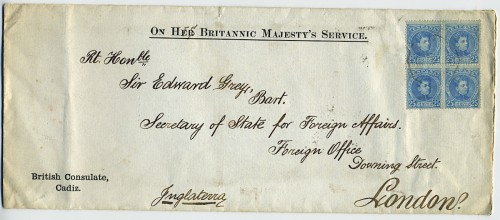 On Her Britannic Majesty's Service.
Rt. Honble
Sir Edward Grey,
Bart.
Secretary of State for Foreign Affairs.
Foreign Office
Downing Street.
London.
British Consulate,
Cadiz.
Inglaterra
25 25
25 25